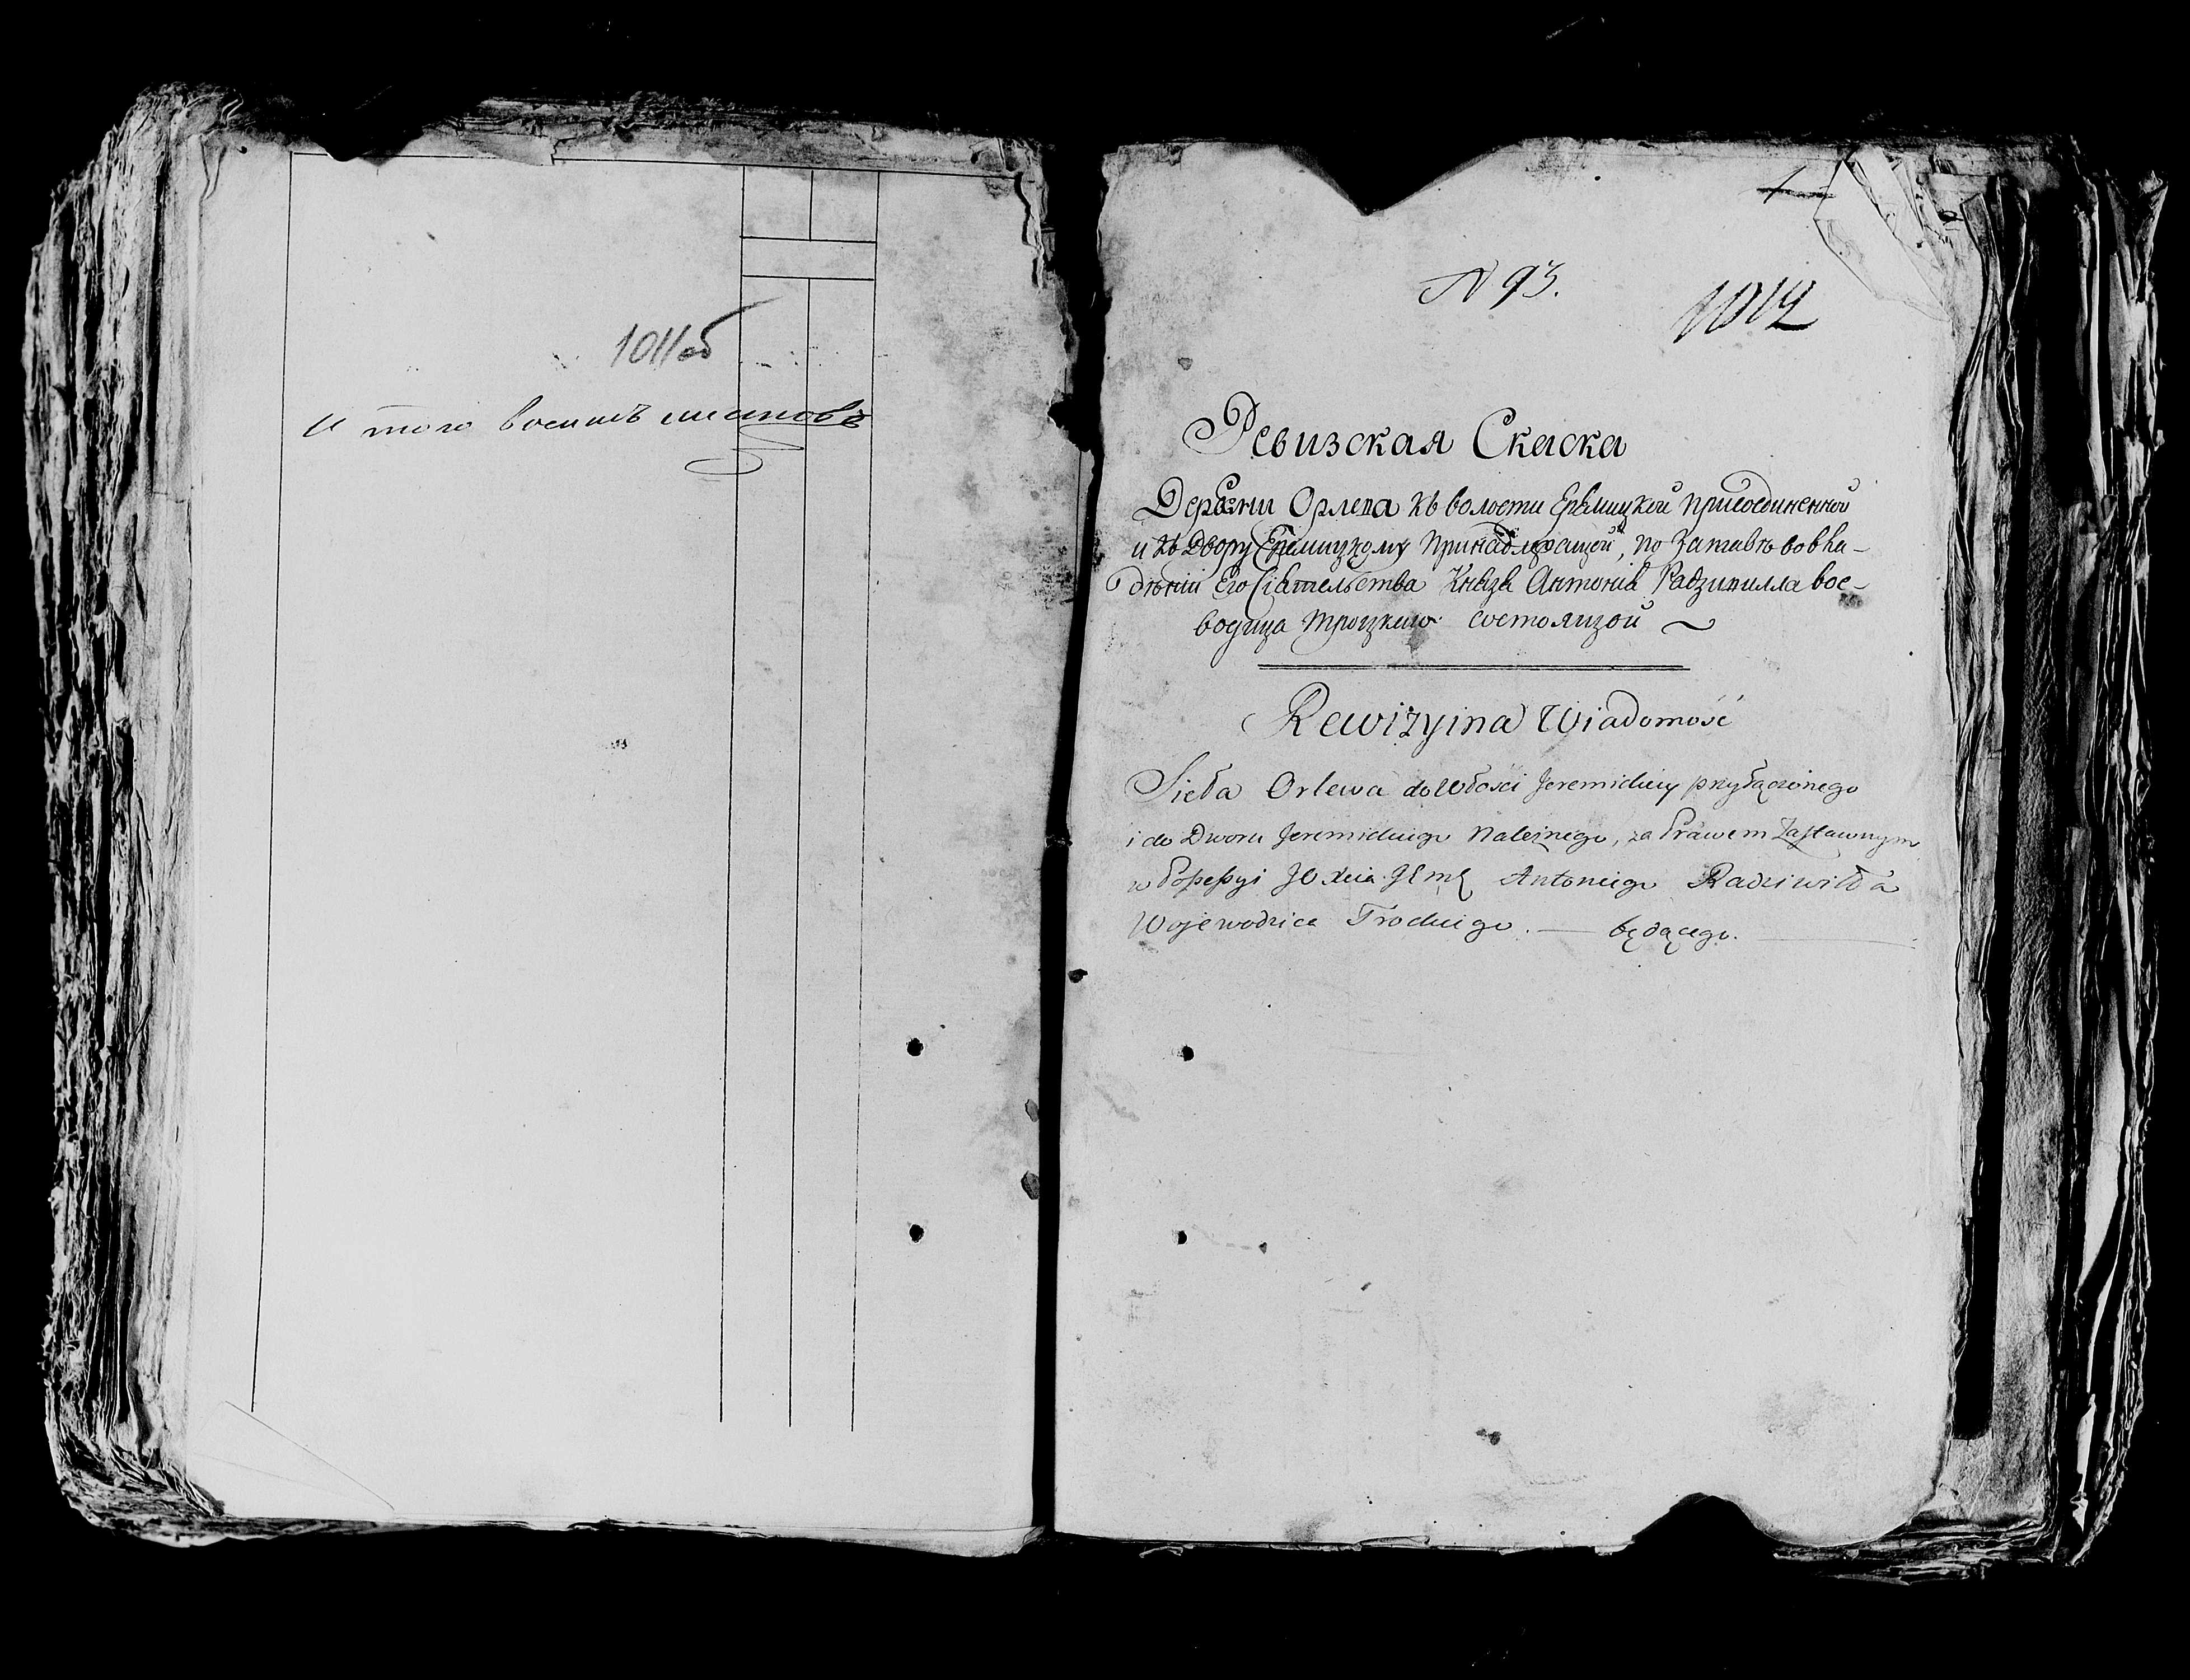 1011об
И того восимъ листовъ
N 93.
1012
Ревизская Скаска
Деревни Орлева къ волости Еремицкой присоединенной
и къ Двору Еремицкому принадлежащей, по Заставѣ вовла-
дѣнiи Его Сiятельства Князя Антонiя Радзивилла вое-
водица Троцкаго состоящой
Rewizyina Wiadomość
Sieła Orlewa do Włości Jeremickiey przyłączonego
i do Dworu Jeremickiego Należnego, za Prawem Zastawnym
w Possessyi JO Xcia JEmę Antoniego Radziwiłła
Wojewodzica Trockiego. — będącego.